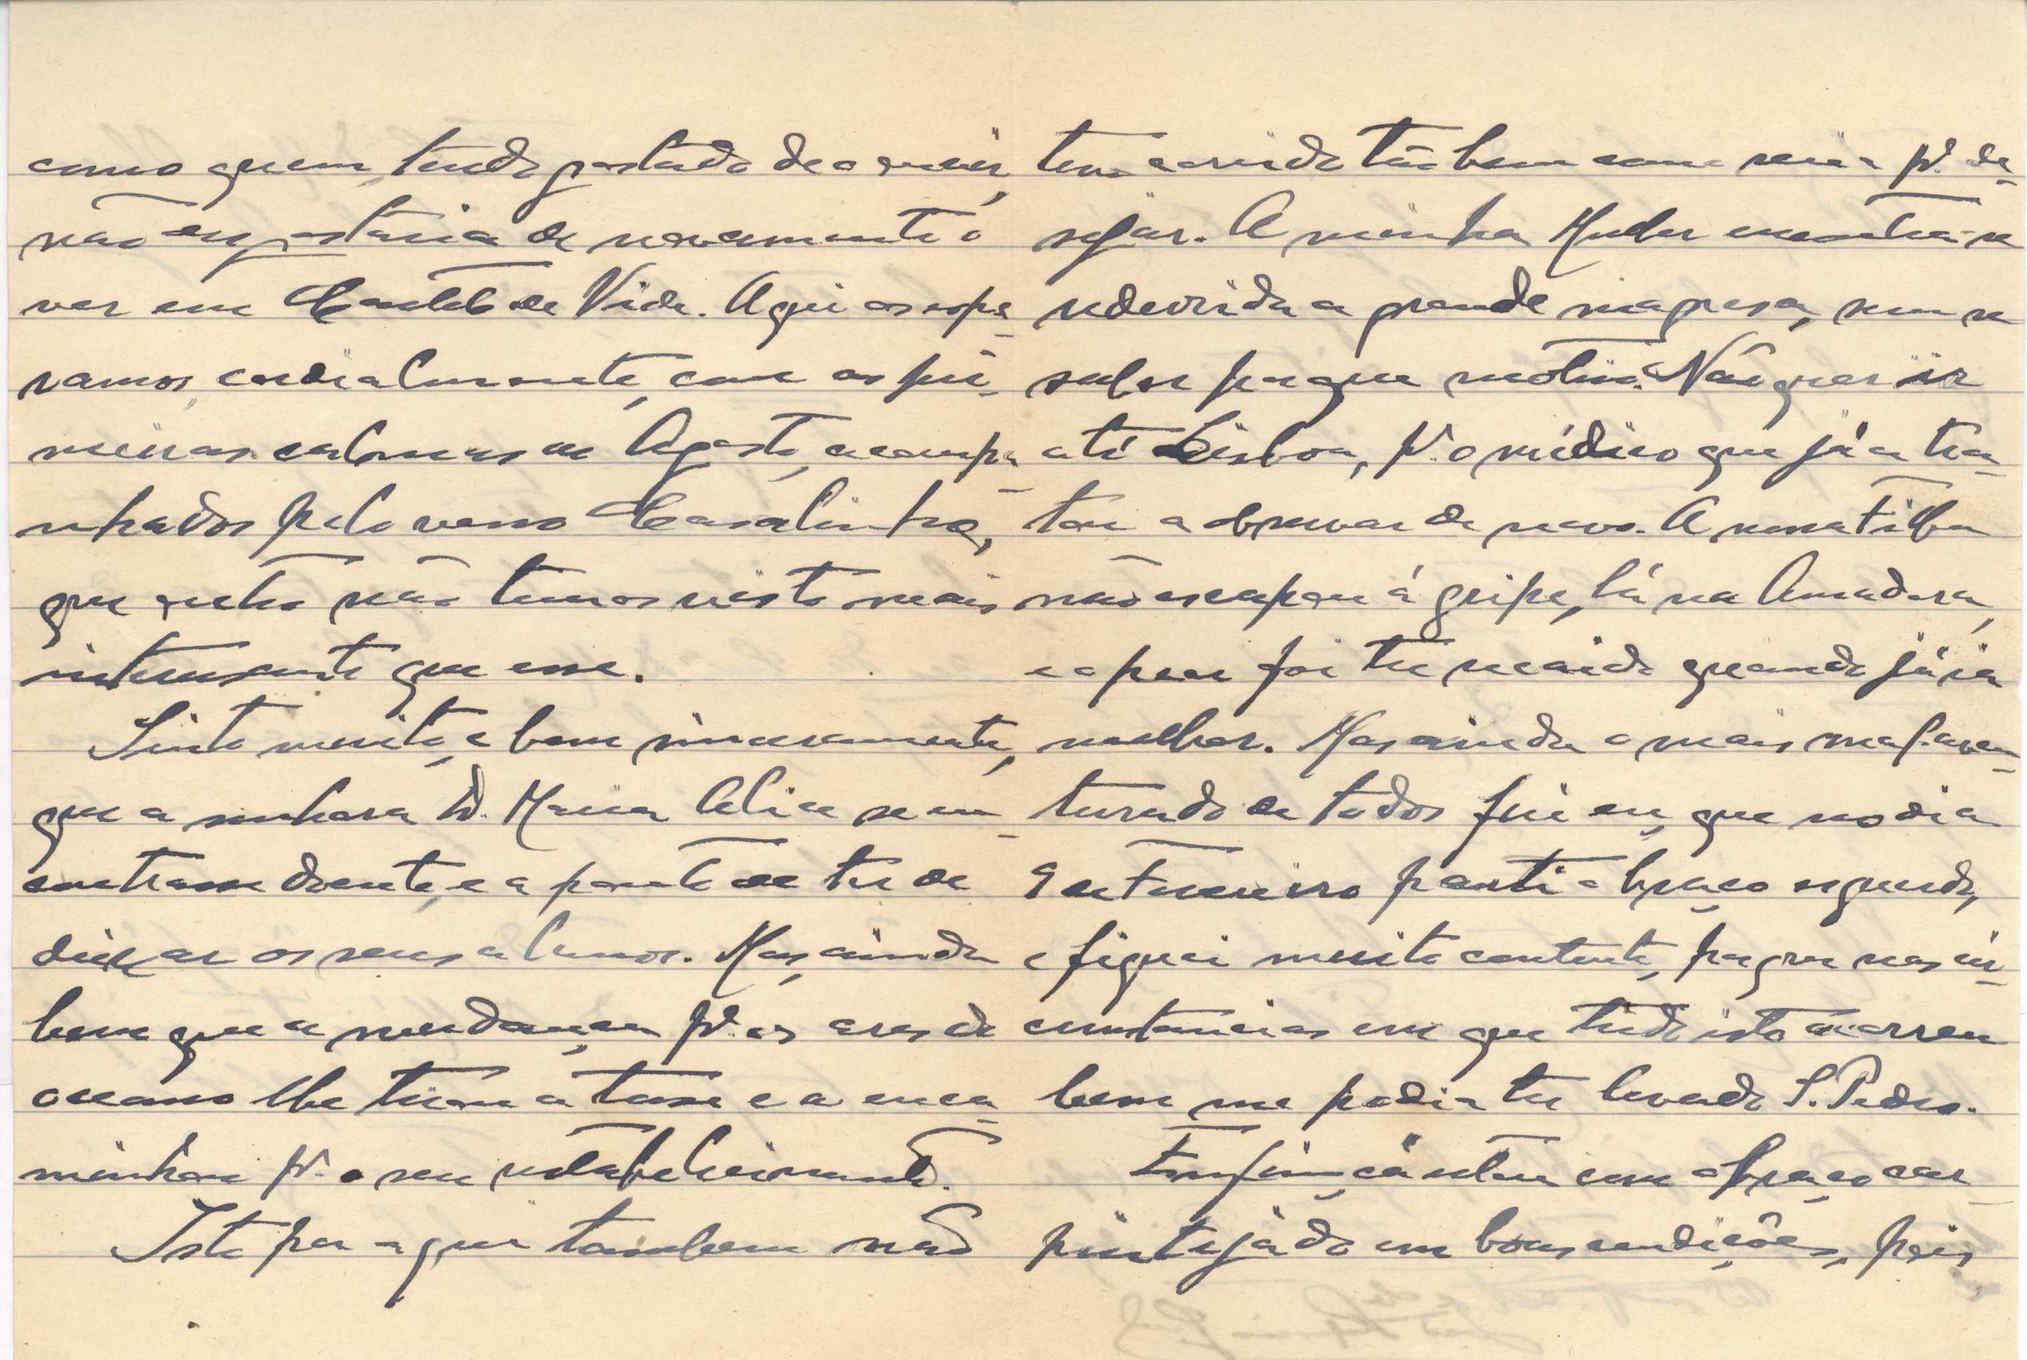 como quem, tendo gostado de o ouvir,
não gostaria de novamente o
ver em Castelo de Vide. Aqui os espe-
ramos, cordialmente, com as pri-
meiras calmas de Agosto, acompa-
nhados pelo vosso Casalinho,
que outro não temos visto mais
interessante que esse.
Sinto muito, e bem sinceramente,
que a senhora D. Maria Alice se en-
contrasse doente, e a ponto de ter de
deixar os seus alunos. Mas, ainda
bem que a mudança pª os ares do
oceano lhe tirou a tosse e a enca-
minhou pª o seu restabelecimento.
Isto por aqui tambem não
tem corrido tão bem como seria pª de-
sejar. A minha Mulher encontra-se
reduzida a grande magresa, sem se
saber porque motivo. Não quer ir
até Lisboa, pª o médico que já a tra-
tou a observar de novo. A nossa Filha
não escapou á gripe, lá na Amadora,
e o peor foi ter recaido quando já ia
melhor. Mas ainda o mais mal aven-
turado de todos fui eu, que no dia
9 de Fevereiro parti o braço esquerdo,
e fiquei muito contente, porque nas cir-
cunstancias em que tudo isto ocorreu
bem me podia ter levado S. Pedro.
Enfim, cá estou com o braço car-
pintejado em boas condições, pois